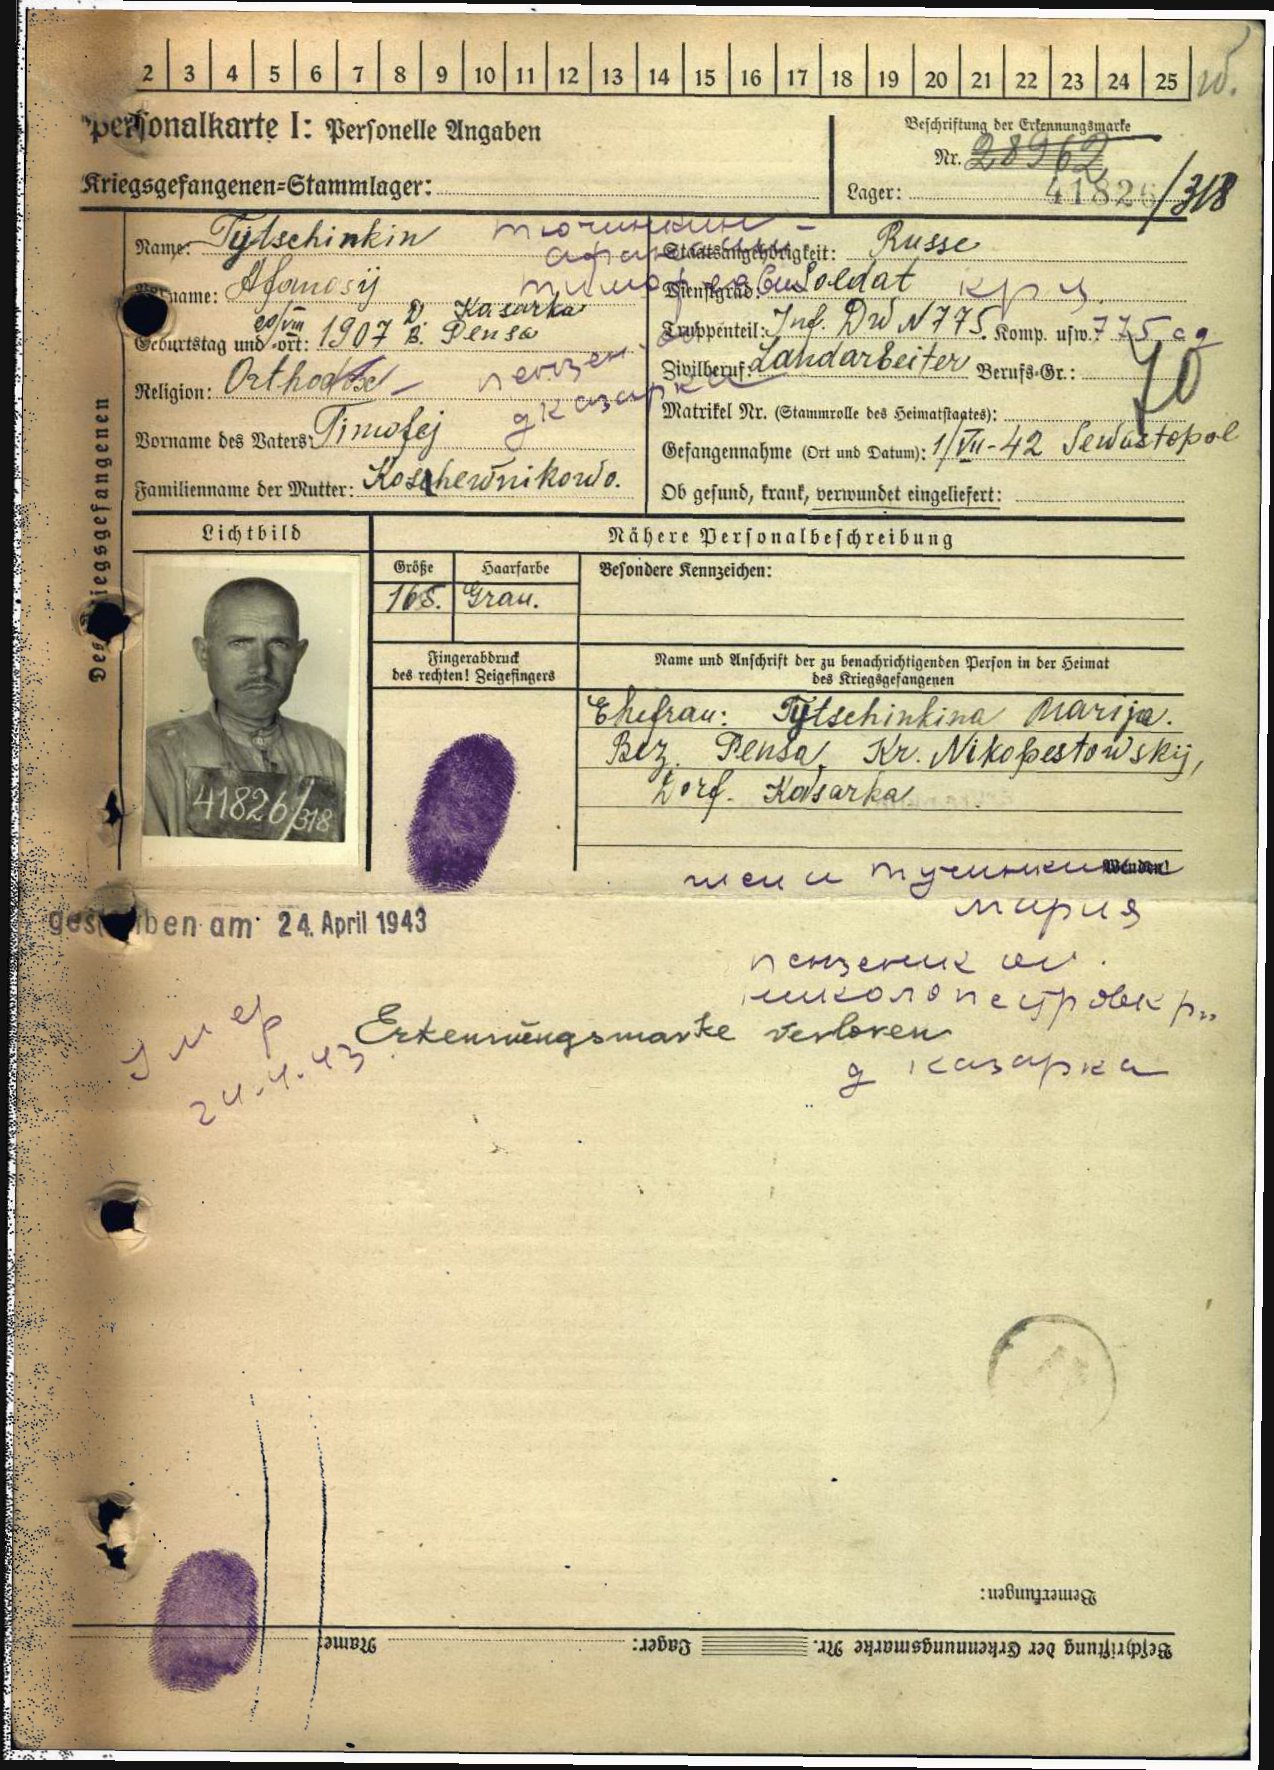 2 3 4 5 6 7 8 9 10 11 12 13 14 15 16 17 18 19 20 21 22 23 24 25
Personalkarte I: Personelle Angaben
Beschriftung der Erkennungsmarke
Nr. 28962
Kriegsgefangenen-Stammlager:
Lager: 41826/318
Des Kriegsgefangenen
Name: Tytschinkin
тючинкин
Staatsangehörigkeit: Russe
Vorname: Afanasij
Dienstgrad: Soldat
кр
20/VIII D. Kasarka
Geburtstag und -ort: 1907 B. Pensa
Truppenteil: Inf. Div N 775. Komp. usw. 775
Religion: Orthodox
пензен
Zivilberuf: Landarbeiter Berufs-Gr.:
70
д казарка
Matrikel Nr. (Stammrolle des Heimatstaates):
Vorname des Vaters: Timofej
Gefangennahme (Ort und Datum): 1/VII-42 Sewastopol
Familienname der Mutter: Koschewnikowo.
Ob gesund, krank, verwundet eingeliefert:
Lichtbild
Nähere Personalbeschreibung
Größe
Haarfarbe
Besondere Kennzeichen:
168.
Grau.
Fingerabdruck
des rechten! Zeigefingers
Name und Anschrift der zu benachrichtigenden Person in der Heimat
des Kriegsgefangenen
Ehefrau: Tytschinkina Marija.
Bez. Pensa, Kr. Nikopestowskij,
Dorf. Kasarka
41826/318
Wenden!
жена тучинкина
мария
gestorben am 24. April 1943
николопестровск р
умер
24.4.43
Erkennungsmarke verloren
д казарка
Bemerkungen:
Beschriftung der Erkennungsmarke Nr. Lager: Name: